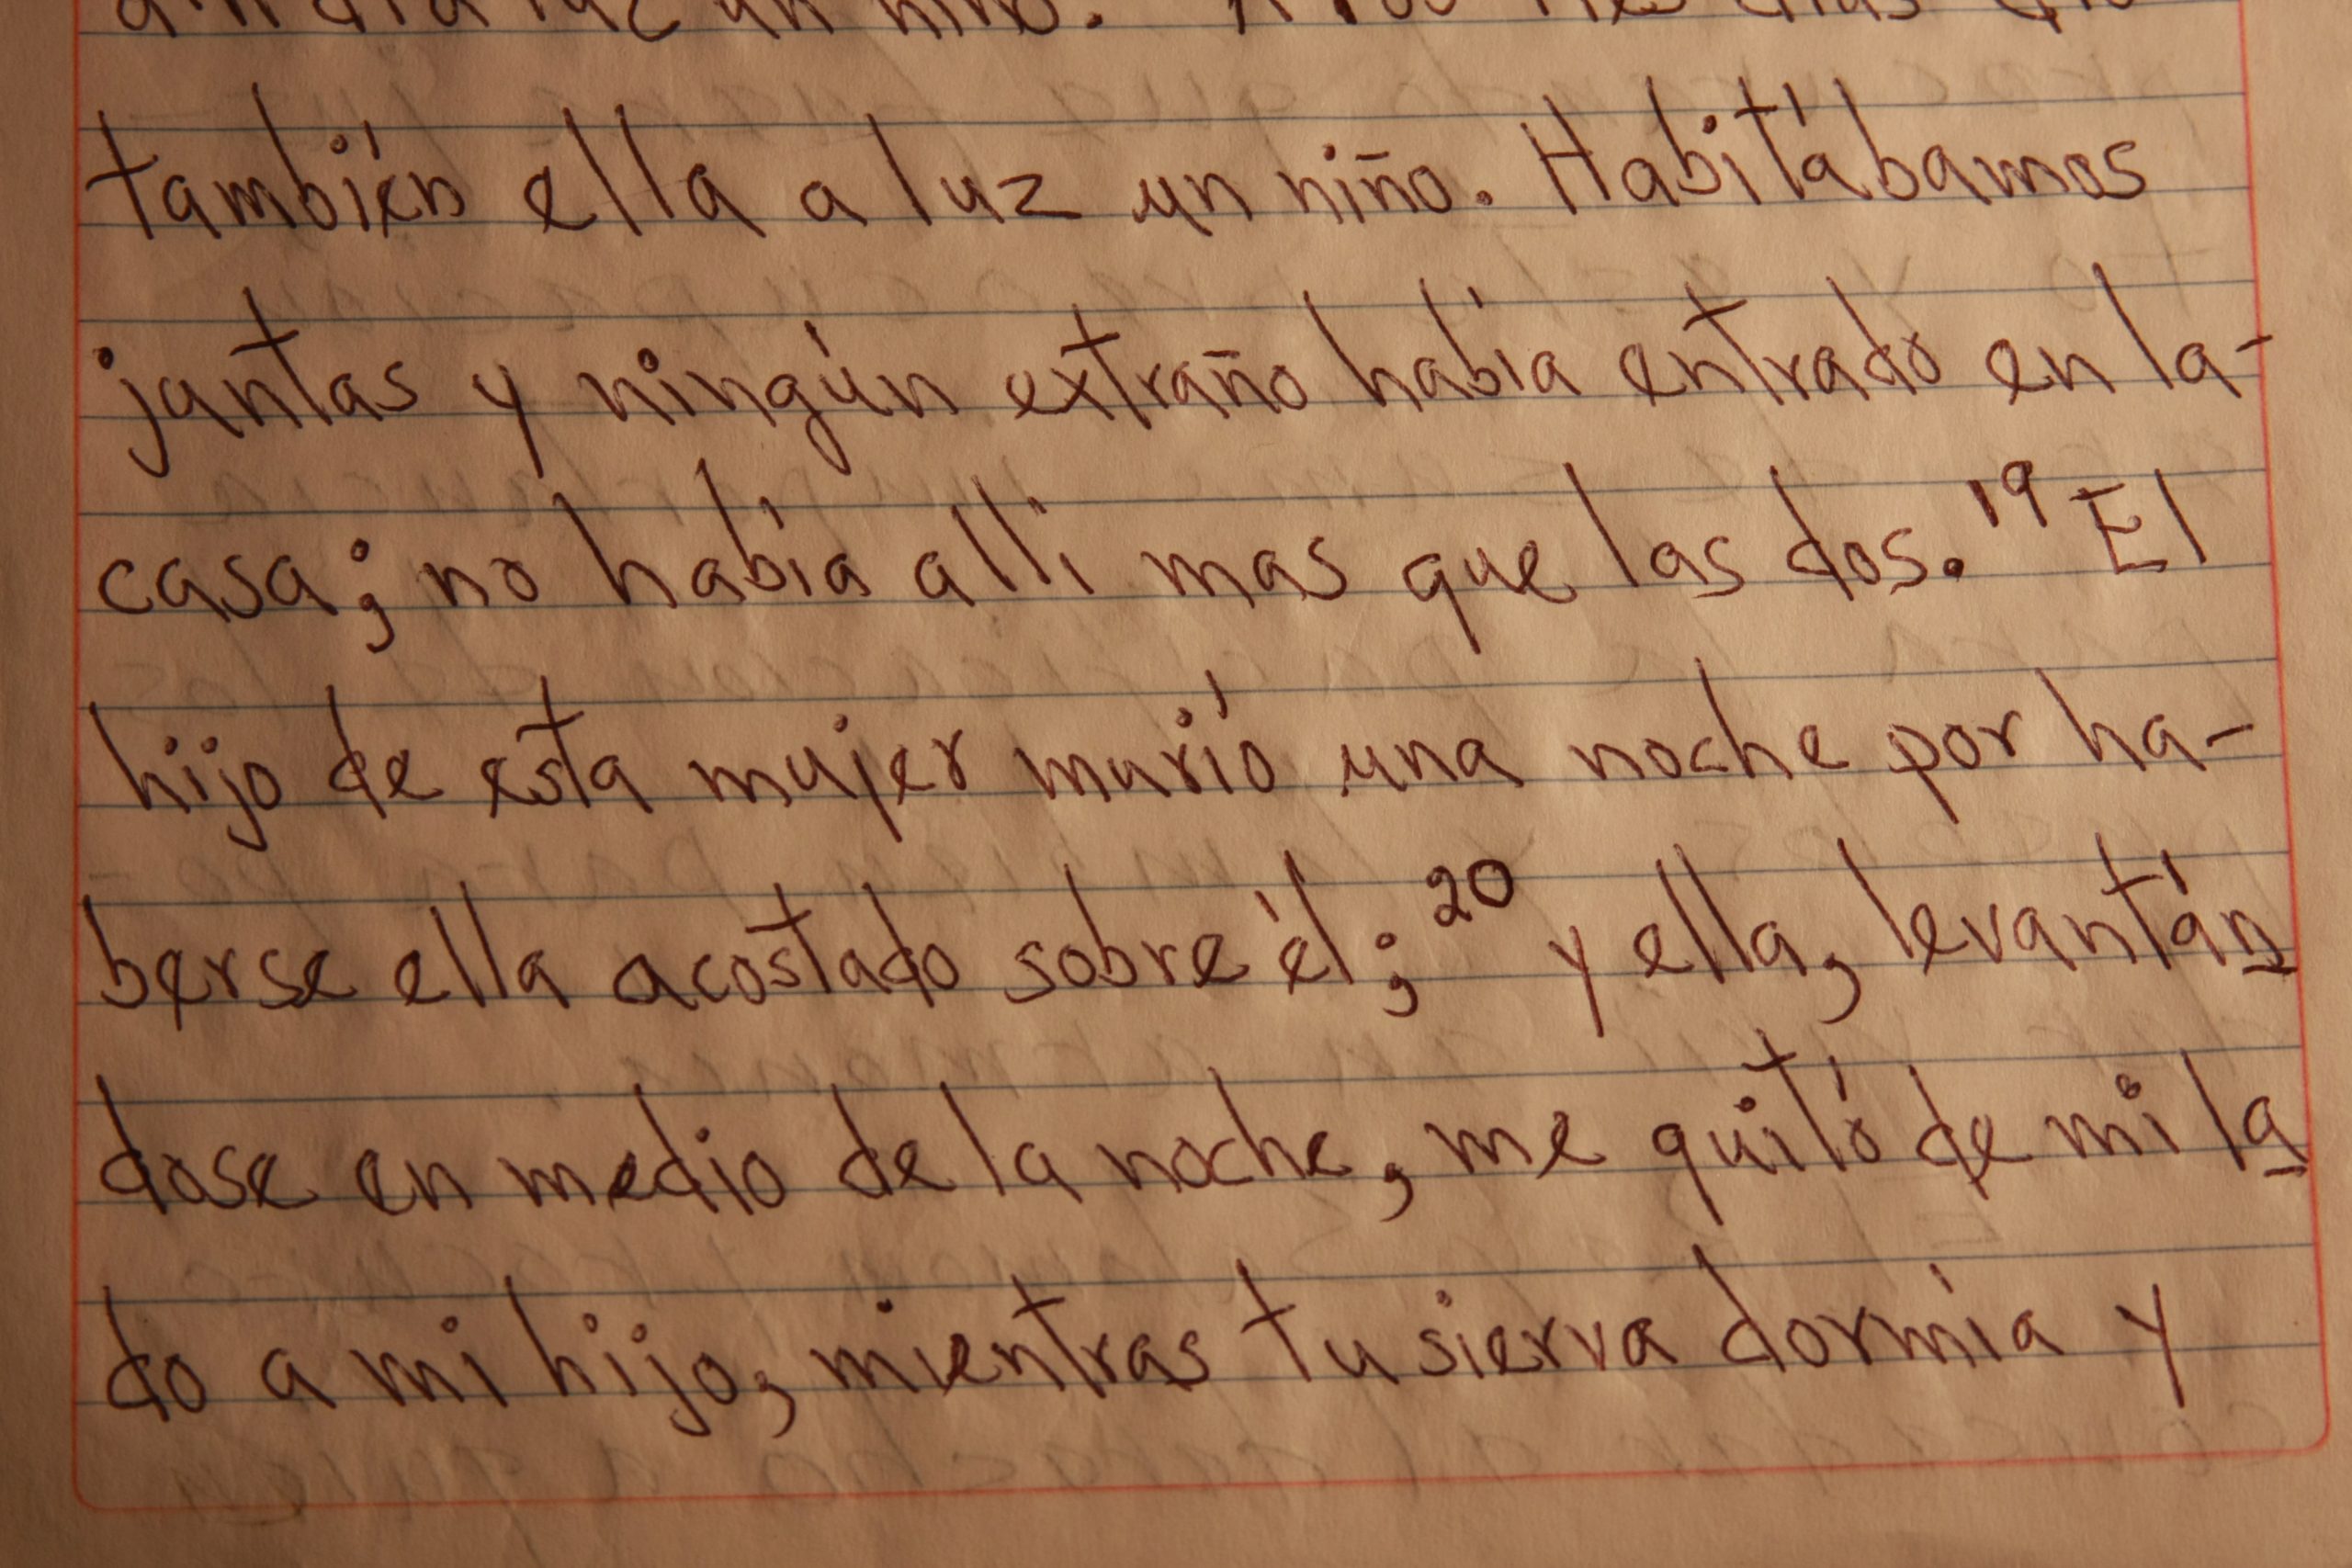 un niño.
también ella a luz un niño. Habitábamos
juntas y ningún extraño había entrado en la-
casa; no había allí mas que las dos. 19 El
hijo de esta mujer murió una noche por ha-
berse ella acostado sobre él; 20 y ella, levantán
dose en medio de la noche, me quitó de mi la
do a mi hijo, mientras tu sierva dormía y